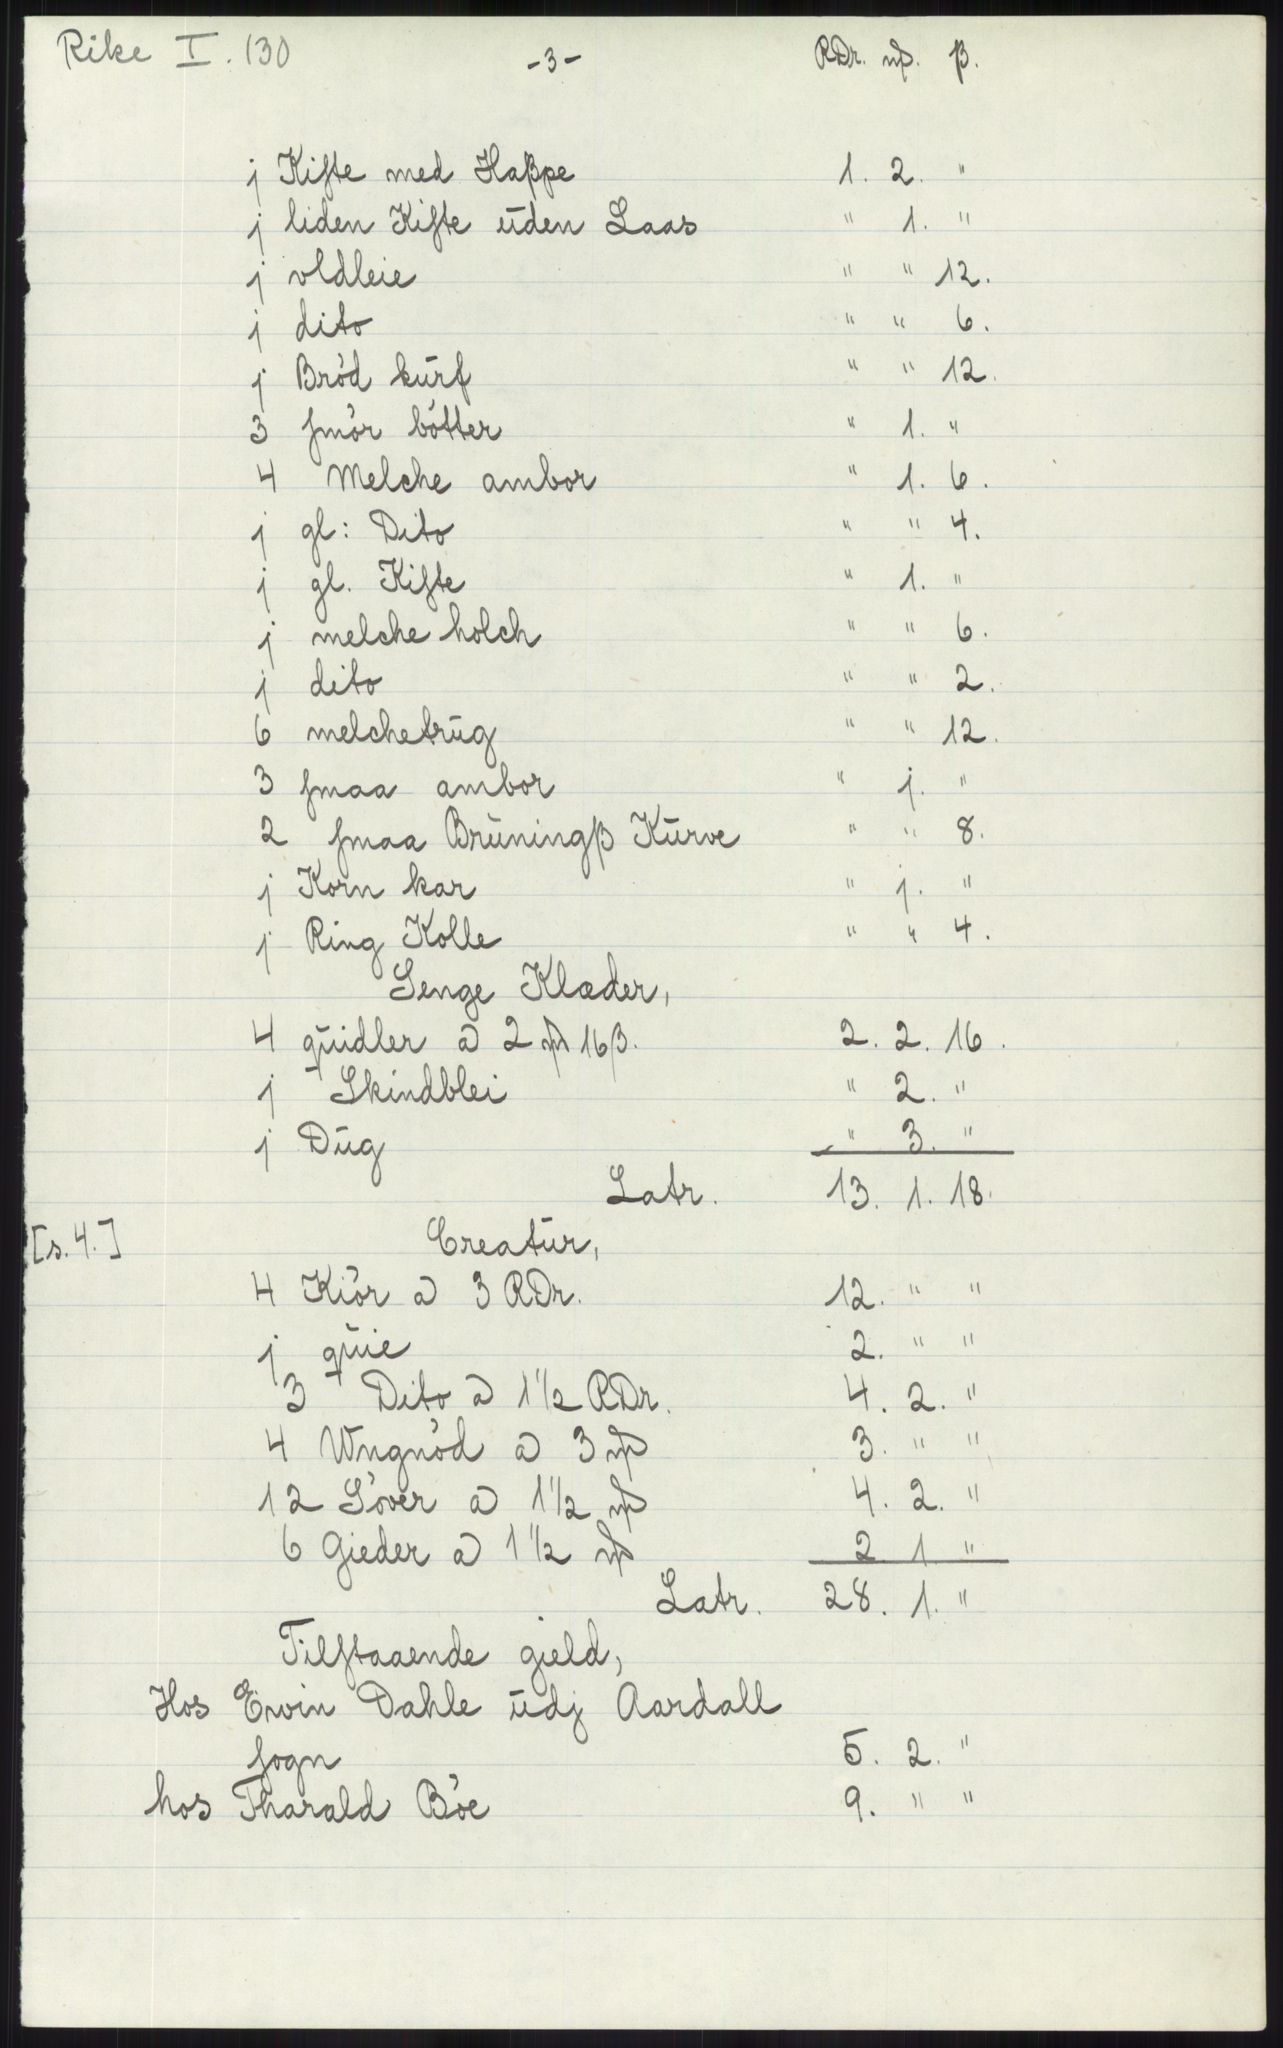 Rike I. 130 -3- RDr. mß. β.
j Kiſte med Haßpe 1. 2. "
j liden Kiſte ūden Laas " 1. "
j vldleie " " 12.
j dito " " 6.
j Brød kūrf " " 12.
3 ſmør bøtter " 1. "
4 Melche ambor " 1. 6.
j gl: Dito " " 4.
j gl. Kiſte " 1. "
j melche holch " " 6.
j dito " " 2.
6 melchetrūg " " 12.
3 ſmaa ambor " j. "
2 ſmaa Brūningß Kūrve " " 8.
j Korn kar " j. "
j Ring Kolle " " 4.
Senge Klæder,
4 qūidler a 2 mß 16β. 2. 2. 16.
j Skindblei " 2. "
j Dūg " 3. "
Latr. 13. 1. 18.
[s. 4.] Creatūr,
4 Kiør a 3 RDr. 12. " "
j qūie 2. " "
3 Dito a 1½ RDr. 4. 2. "
4 Wngnød a 3 mß 3. " "
12 Søver a 1½ mß 4. 2. "
6 Gieder a 1½ mß 2 1 "
Latr. 28. 1. "
Tilſtaaende gield,
Hos Ewin Dahle ūdj Aardall
ſogn 5. 2. "
hos Tharald Bøe 9. " "